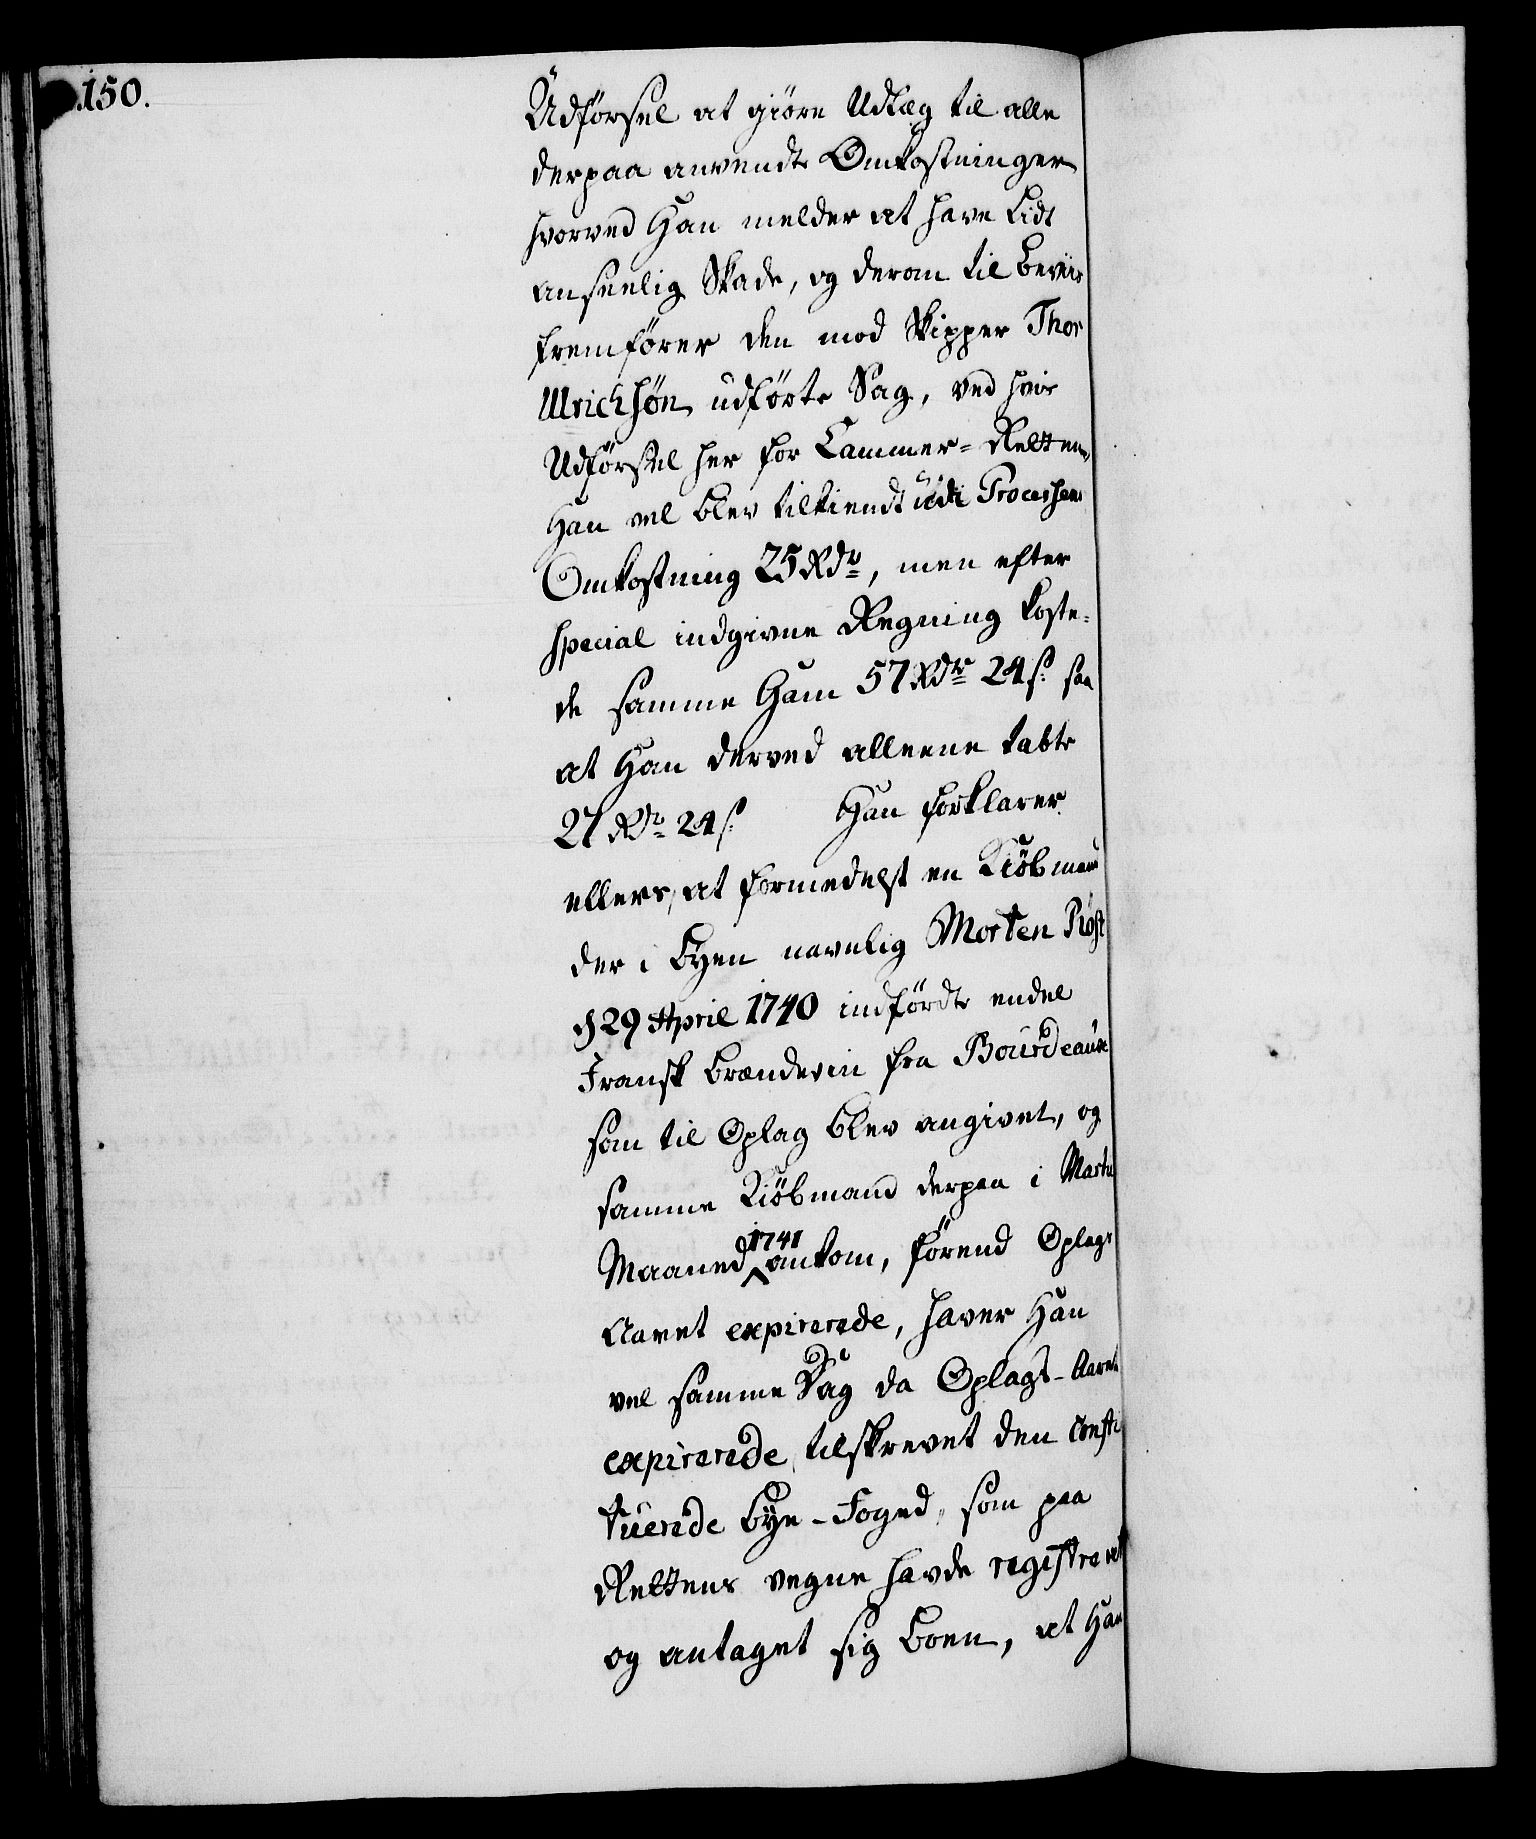 150.
Udförsel at giöre Udlæg til alle
derpaa anvendte Omkostninger
hvorved Han melder at have Lidt
anseelig Skade, og derom til Beviis
fremförer den mod Skipper Thor
Ulrichsøn udförte Sag, ved hvis
Udförsel her for Cammer-Retten,
Han vel blev tilkiendt udi Processens
Omkostning 25 Rdr, men efter
special indgivne Regning koste-
de samme Ham 57 Rdr 24 s: saa
at Han derved alleene tabte
27 Rdr 24 s: Han forklarer
ellers, at formedelst en Kiöbmand
der i Byen navnlig Morten Röst
d 29 April 1740 indfördte endel
Fransk Brændeviin fra Bourdeaux
som til Oplag blev angivet, og
samme Kiöbmand derpaa i Martii
Maaned 1741 omkom, förend Oplags
Aaret expirerede, haver Han
vel samme Dag da Oplags-Aaret
expirerede, tilskrevet den consti
tuerede Bye-Foged, som paa
Rettens vegne havde registreret
og antaget sig Boen, at Han